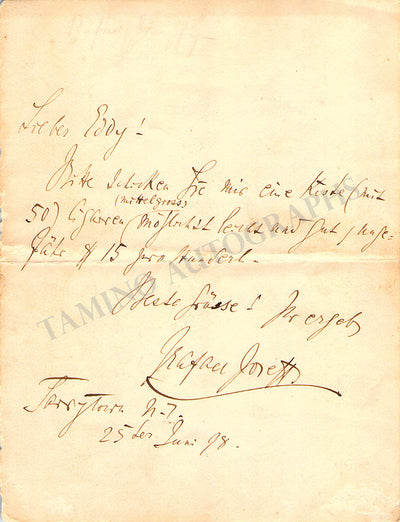 Lieber Eddy!
Bitte schicken Sie mir eine Kiste (mit
(mittelgross)
50) Cigarren möglichst leicht und gut, unge-
fähr $ 15 pro Hundert.
Beste Grüsse! Ihr ergeb
Rafael Joseffy
Tarrytown N.Y.
25ter Juni 98.
TAMINO AUTOGRAPHS